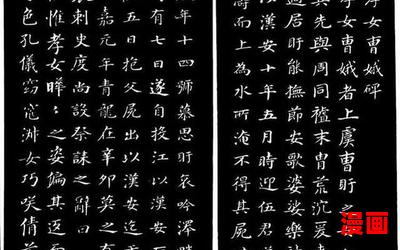 孝女曹娥碑
孝女曹娥者上虞曹盱之
其先與周同祖末冑荒沉爰
適居盱能撫節安歌婆娑樂
以漢安年五月時迎伍君
濤而上為水所淹不得其屍
年十四號慕思盱哀吟澤
有七日遂自投江
五日抱父屍出以漢安迄
嘉元年青龍在辛卯莫之有
刺史度尚設祭誄之辭
惟孝女曄〻之姿偏其返而
色孔儀窈窕淑女巧笑倩
漫画